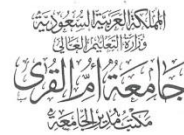 المملكة العربية السعودية
وزارة التعليم العالي
جامعة أم القرى
مكتب مدير الجامعة